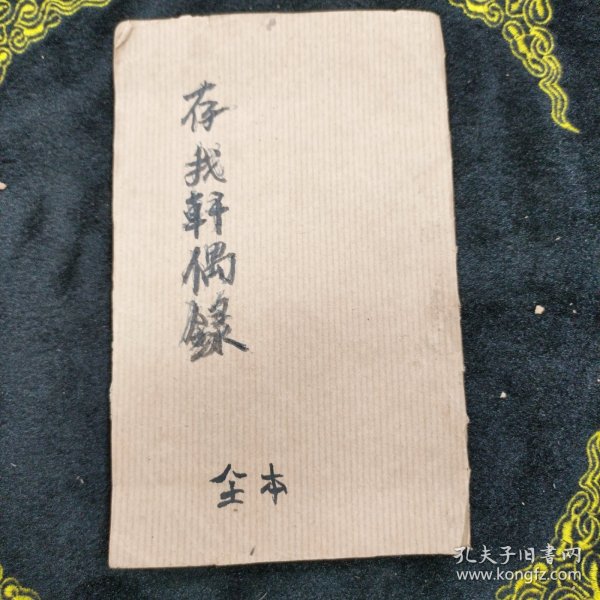 存我軒偶錄
全本
孔夫子旧書网
www.kongfz.com